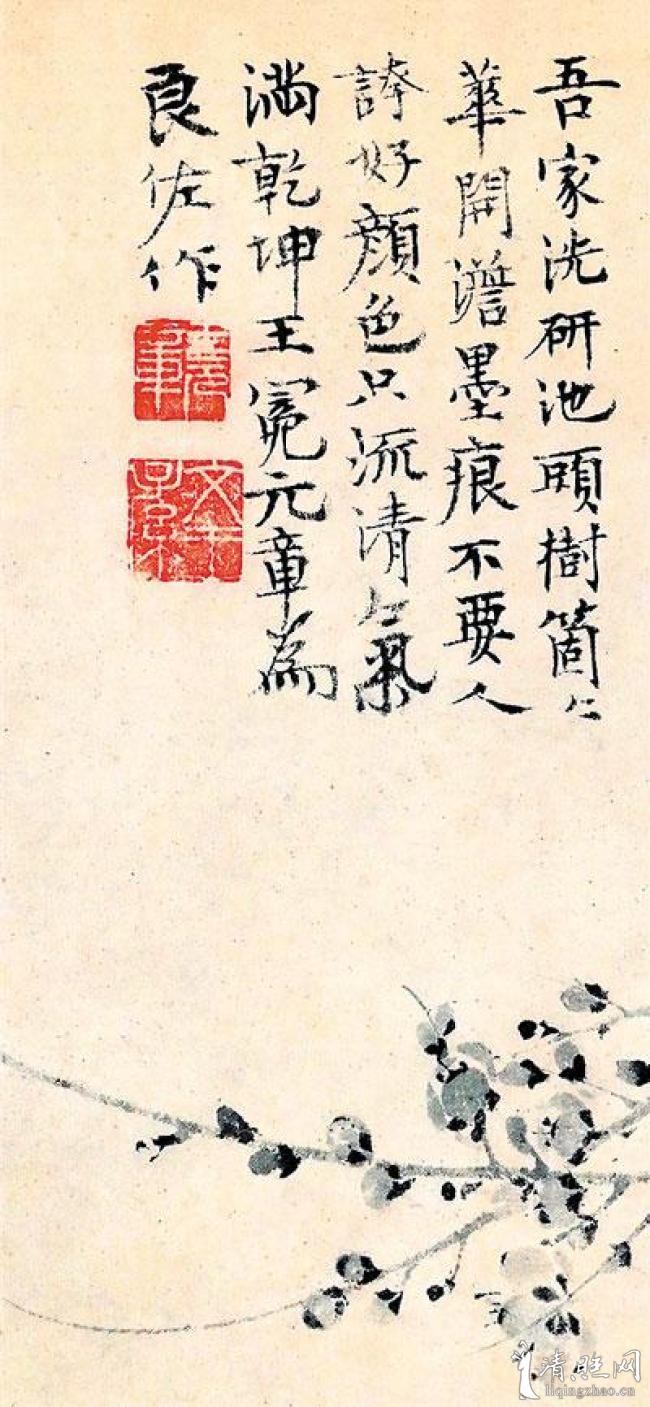 吾家洗研池頭樹箇〻
華開澹墨痕不要人
誇好顏色只流清氣
滿乾坤王冕元章為
良佐作
文王子孫
清照网
liqingzhao.cn